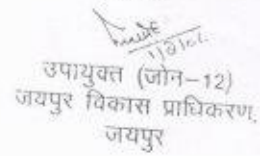 उपायुक्त (जोन-12)
जयपुर विकास प्राधिकरण,
जयपुर